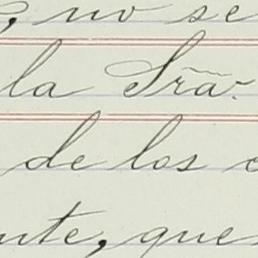 , no se
la Sra.
de los
nte, que